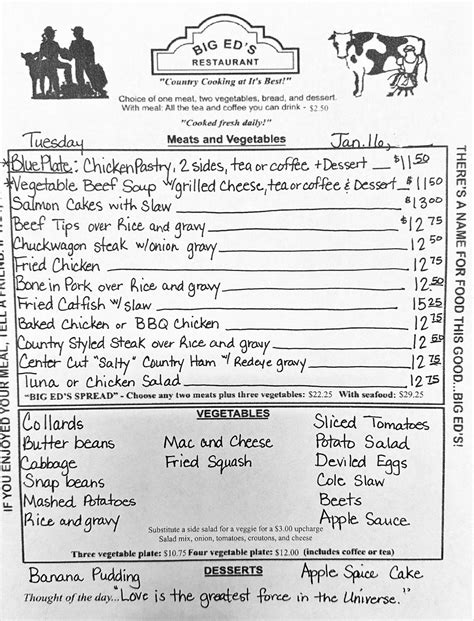 BIG ED'S
RESTAURANT
"Country Cooking at It's Best!"
Choice of one meat, two vegetables, bread, and dessert.
With meal: All the tea and coffee you can drink - $2.50
"Cooked fresh daily!"
Tuesday Meats and Vegetables Jan. 16,
*Blue Plate: Chicken Pastry, 2 sides, tea or coffee + Dessert $11.50
*Vegetable Beef Soup w/grilled Cheese, tea or coffee & Dessert $11 50
Salmon Cakes with Slaw $13 00
Beef Tips over Rice and gravy $12 75
Chuckwagon steak w/onion gravy 12 50
Fried Chicken 12 75
Bone in Pork over Rice and gravy 12.50
Fried Catfish w/ slaw 15 25
Baked Chicken or BBQ Chicken 12 75
Country Styled Steak over Rice and gravy 12 50
Center Cut "Salty" Country Ham w/ Redeye gravy 12 75
Tuna or Chicken Salad 12 75
"BIG ED'S SPREAD" - Choose any two meats plus three vegetables: $22.25 With seafood: $29.25
VEGETABLES
Collards Sliced Tomatoes
Butter beans Mac and Cheese Potato Salad
Cabbage Fried Squash Deviled Eggs
Snap beans Cole Slaw
Mashed Potatoes Beets
Rice and gravy Apple Sauce
Substitute a side salad for a veggie for a $3.00 upcharge
Salad mix, onion, tomatoes, croutons, and cheese
Three vegetable plate: $10.75 Four vegetable plate: $12.00 (includes coffee or tea)
DESSERTS
Banana Pudding Apple Spice Cake
Thought of the day... "Love is the greatest force in the Universe."
IF YOU ENJOYED YOUR MEAL, TELL A FRIEND. IF
THERE'S A NAME FOR FOOD THIS GOOD...BIG ED'S!